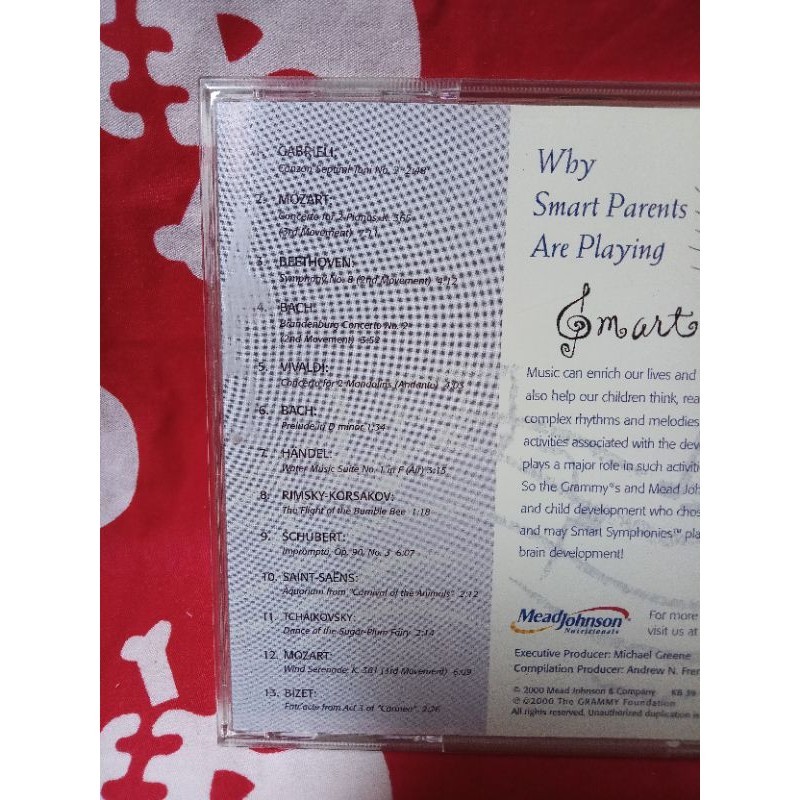 1. GABRIELI:
Canzon Septimi Toni No. 2 2:48
2. MOZART:
Concerto for 2 Pianos K. 365
(3rd Movement) 7:11
3. BEETHOVEN:
Symphony No. 8 (2nd Movement) 4:12
4. BACH:
Brandenburg Concerto No. 2
(2nd Movement) 3:52
5. VIVALDI:
Concerto for 2 Mandolins (Andante) 4:05
6. BACH:
Prelude in D minor 1:34
7. HANDEL:
Water Music Suite No. 1 in F (Air) 3:15
8. RIMSKY-KORSAKOV:
The Flight of the Bumble Bee 1:18
9. SCHUBERT:
Impromptu, Op. 90, No. 3 6:07
10. SAINT-SAËNS:
Aquarium from "Carnival of the Animals" 2:12
11. TCHAIKOVSKY:
Dance of the Sugar-Plum Fairy 2:14
12. MOZART:
Wind Serenade, K. 361 (3rd Movement) 6:09
13. BIZET:
Entr'acte from Act 3 of "Carmen" 2:26
Why
Smart Parents
Are Playing
Smart
Music can enrich our lives and
also help our children think, rea
complex rhythms and melodies
activities associated with the dev
plays a major role in such activiti
So the Grammy®s and Mead Joh
and child development who chos
and may Smart Symphonies™ pla
brain development!
MeadJohnson
Nutritionals
For more
visit us at
Executive Producer: Michael Greene
Compilation Producer: Andrew N. Fren
© 2000 Mead Johnson & Company KB 39
℗ ©2000 The GRAMMY Foundation
All rights reserved. Unauthorized duplication is